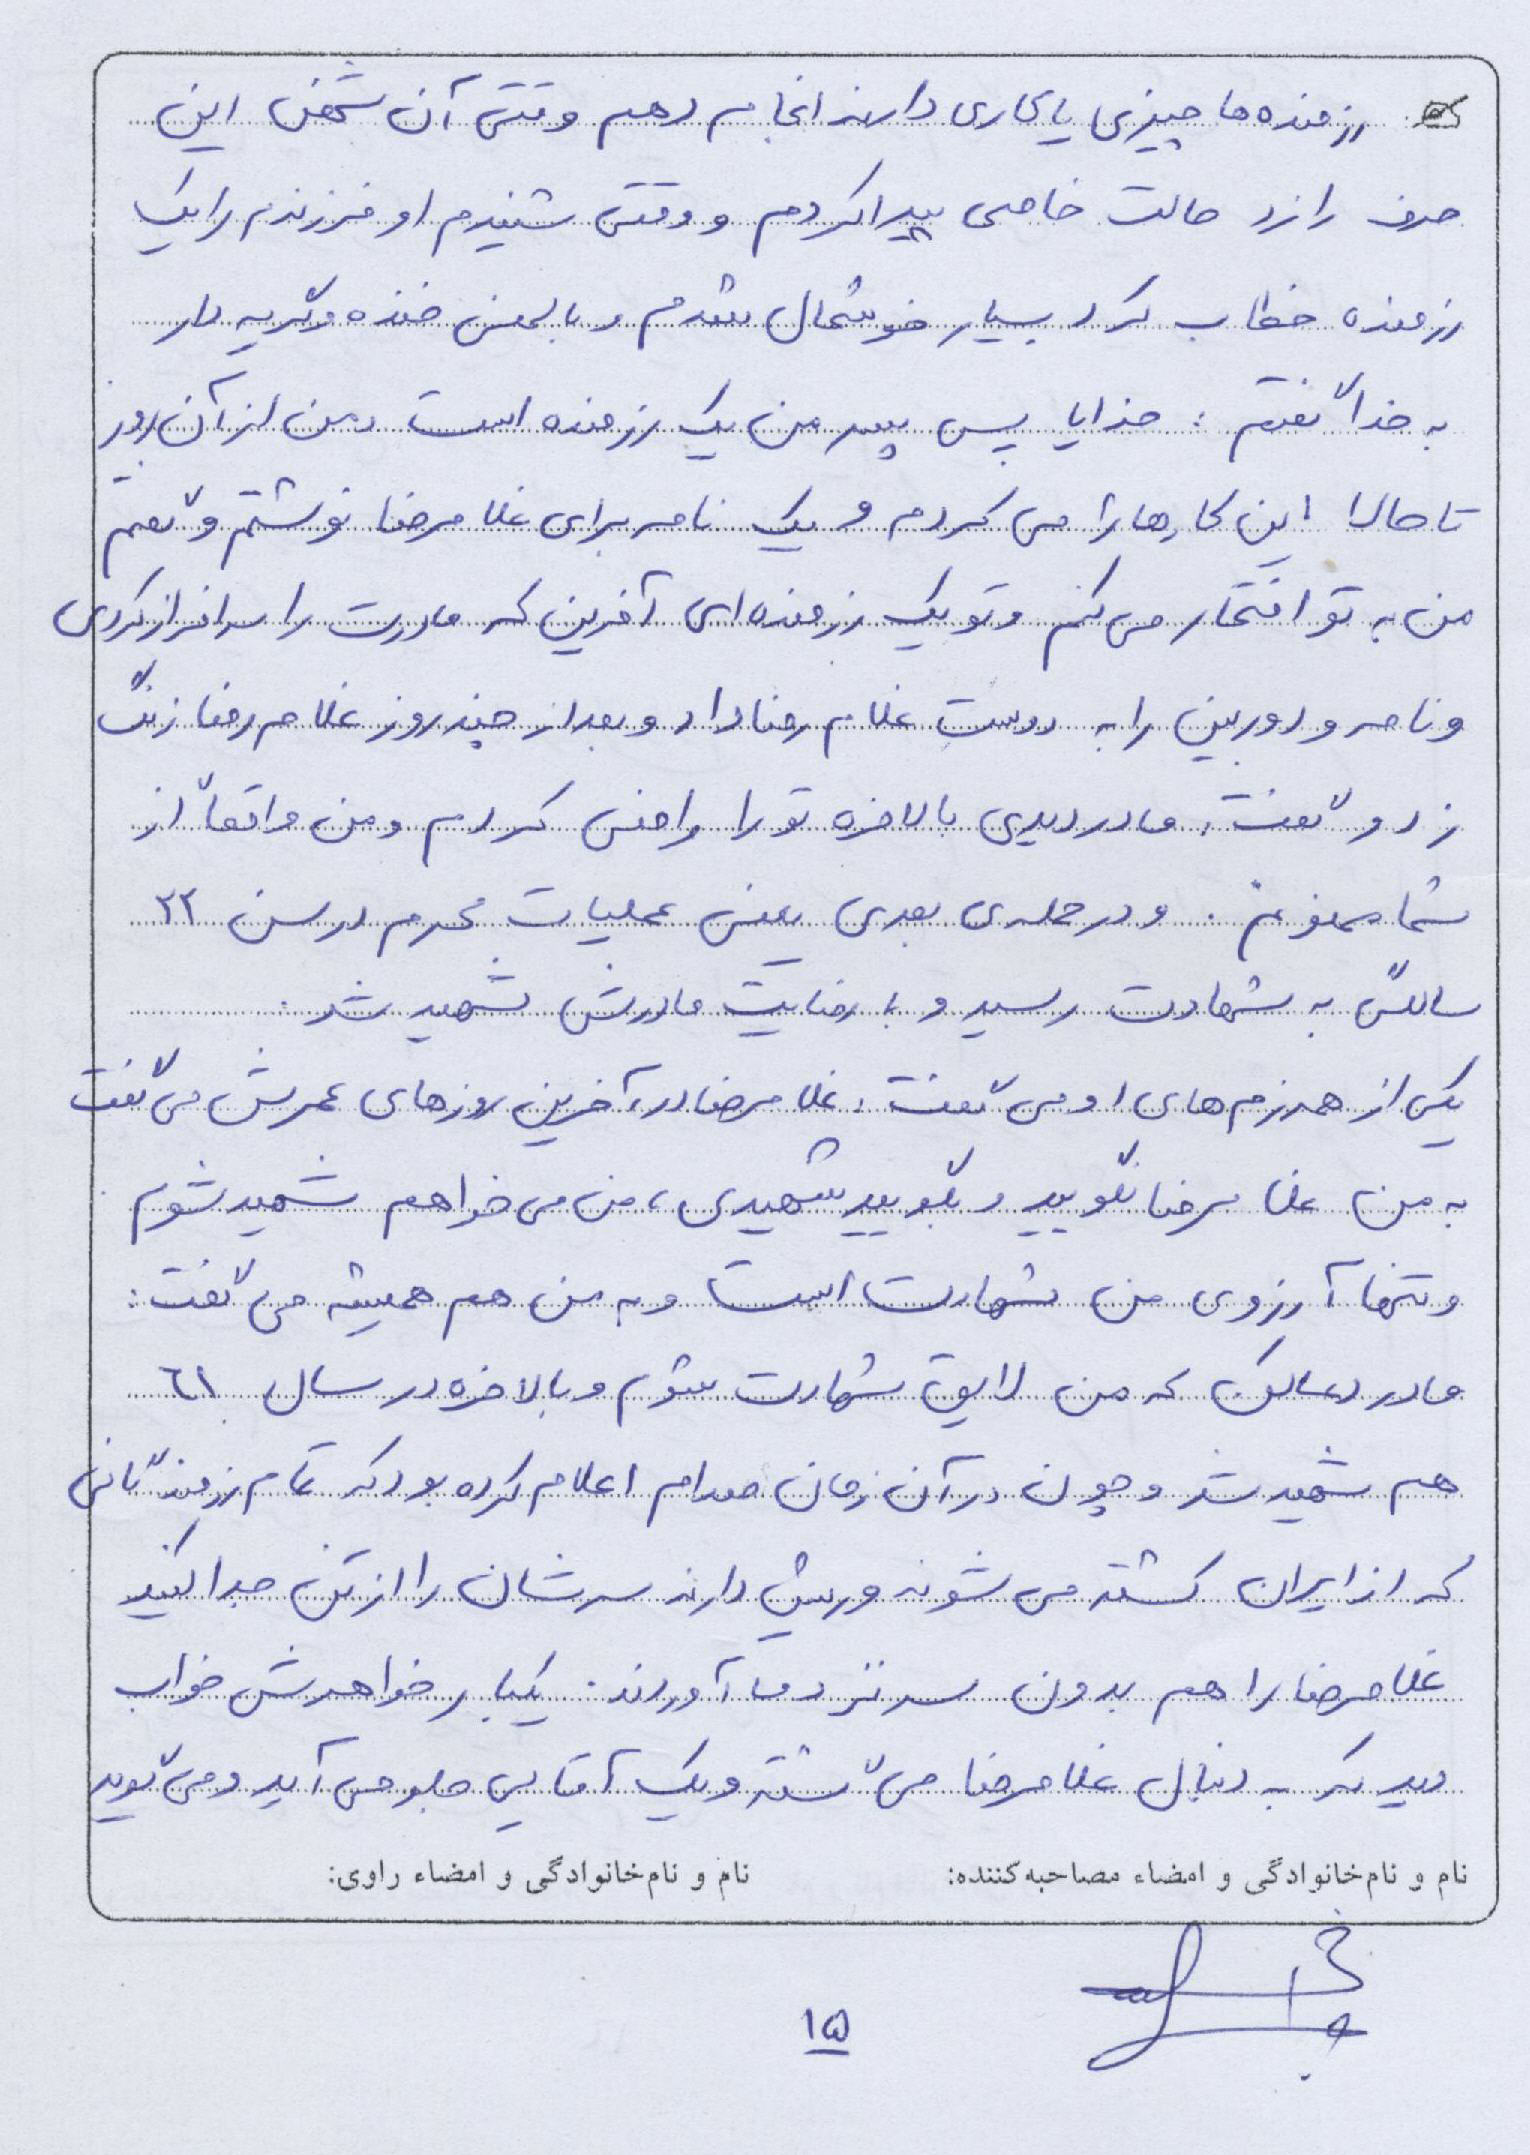 رزمنده‌ها چیزی یا کاری دارند انجام دهم وقتی آن شخص این
حرف را زد حالت خاصی پیدا کردم و وقتی شنیدم او فرزندم را یک
رزمنده خطاب کرد بسیار خوشحال شدم و با لحن خنده و گریه دار
به خدا گفتم: خدایا پس پسر من یک رزمنده است و من از آن روز
تا حالا این کارها را می کردم و یک نامه برای غلامرضا نوشتم و گفتم
من به تو افتخار می کنم و تو یک رزمنده ای آفرین که مادرت را سرافراز کردی
و نامه و دوربین را به دوست غلام رضا داد و بعد از چند روز غلام رضا زنگ
زد و گفت: مادر دیدی بالاخره تو را راضی کردم و من واقعاً از
شما ممنونم. و در حمله‌ی بعدی یعنی عملیات محرم در سن ۲۲
سالگی به شهادت رسید و با رضایت مادرش شهید شد.
یکی از همرزم‌های او می گفت: غلامرضا در آخرین روزهای عمرش می گفت
به من غلامرضا نگویید و بگویید شهیدی، من می خواهم شهید شوم
و تنها آرزوی من شهادت است و به من هم همیشه می گفت:
مادر دعا کن که من لایق شهادت شوم و بالاخره در سال ٦١
هم شهید شد و چون در آن زمان صدام اعلام کرده بود که تمام رزمندگانی
که از ایران کشته می شوند و ریش دارند سرشان را از تن جدا کنید
غلامرضا را هم بدون سر نزد ما آوردند. یکبار خواهرش خواب
دید که به دنبال غلامرضا می گشته و یک آقایی جلو می آید و می گوید
نام و نام‌خانوادگی و امضاء مصاحبه‌کننده: نام و نام‌خانوادگی و امضاء راوی:
۱۵